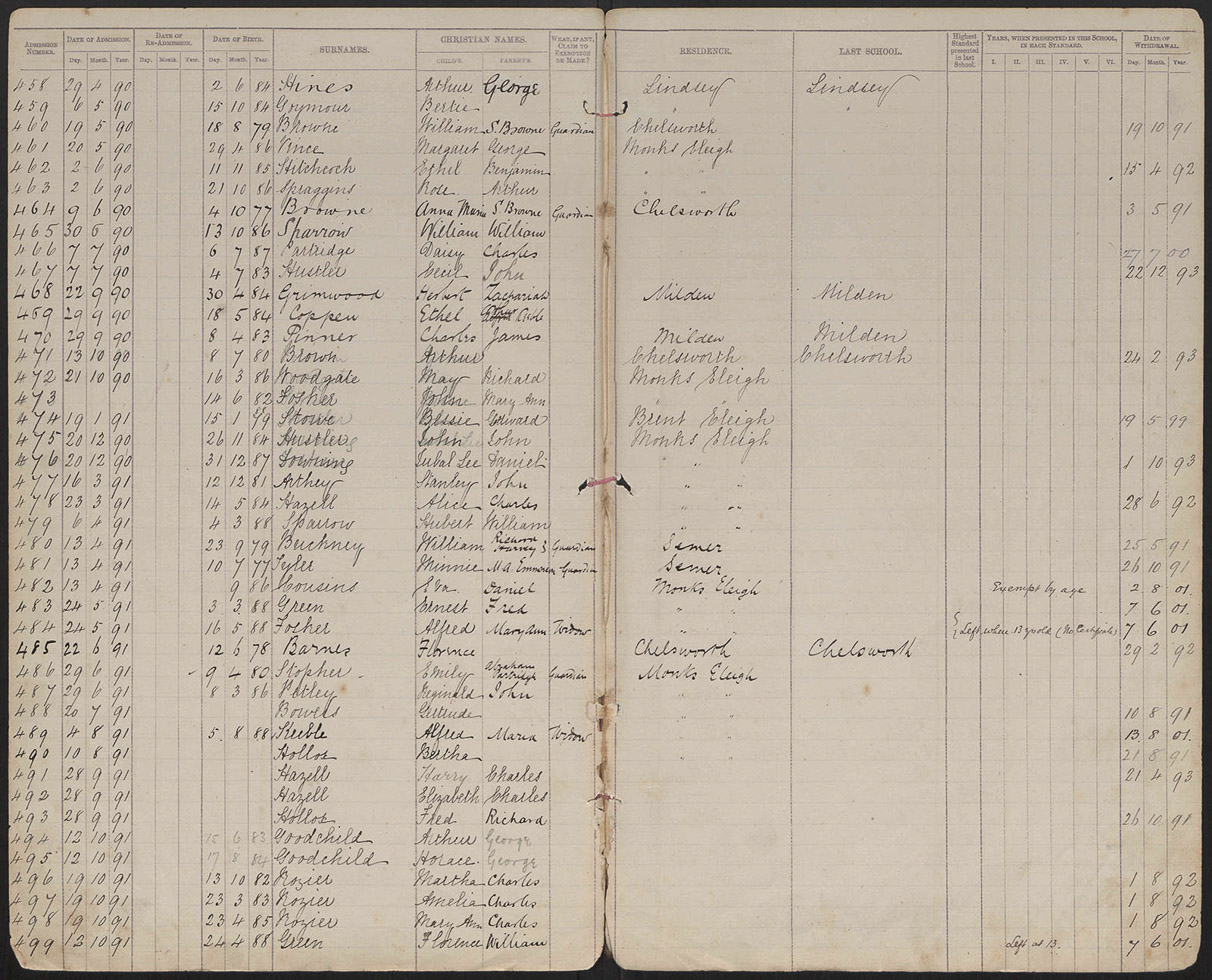 ADMISSION NUMBER. DATE OF ADMISSION. DATE OF RE-ADMISSION. DATE OF BIRTH. SURNAMES. CHRISTIAN NAMES. WHAT, IF ANY, CLAIM TO EXEMPTION BE MADE? RESIDENCE. LAST SCHOOL. Highest Standard presented in last School. YEARS, WHEN PRESENTED IN THIS SCHOOL, IN EACH STANDARD. DATE OF WITHDRAWAL.
Day. Month. Year. Day. Month. Year. Day. Month. Year. CHILD'S. PARENT'S. I. II. III. IV. V. VI. Day. Month. Year.
458 29 4 90 2 6 84 Hines Arthur George Lindsey Lindsey
459 6 5 90 15 10 84 Goymour Bertie " "
460 19 5 90 18 8 79 Browne William S. Browne Guardian Chelsworth 19 10 91
461 20 5 90 29 4 86 Vince Margaret George Monks Eleigh
462 2 6 90 11 11 85 Hitchcock Ethel Benjamin " " 15 4 92
463 2 6 90 21 10 86 Spraggins Rose Arthur " "
464 9 6 90 4 10 77 Browne Anna Maria S. Browne Guardian Chelsworth 3 5 91
465 30 6 90 13 10 86 Sparrow William William
466 7 7 90 6 7 87 Partridge Daisy Charles 27 7 00
467 7 7 90 4 7 83 Hustler Cecil John 22 12 93
468 22 9 90 30 4 84 Grimwood Herbert Zachariah Milden Milden
469 29 9 90 18 5 84 Coppen Ethel
470 29 9 90 8 4 83 Pinner Charles James Milden Milden
471 13 10 90 8 7 80 Brown Arthur Chelsworth Chelsworth 24 2 93
472 21 10 90 16 3 86 Woodgate May Richard Monks Eleigh
473 14 6 82 Fosker John Mary Ann
474 19 1 91 15 1 79 Stowe Bessie Edward Brent Eleigh 19 5 99
475 20 12 90 26 11 84 Hustler John John Monks Eleigh
476 20 12 90 31 12 87 Downing Jubal Lee Daniel " 1 10 93
477 16 3 91 12 12 81 Arthey Stanley John " "
478 23 3 91 14 5 84 Hazell Alice Charles " " 28 6 92
479 6 4 91 4 3 88 Sparrow Hubert William " "
480 13 4 91 23 9 79 Buckney William Richard Guardian Semer 25 5 91
481 13 4 91 10 7 77 Tyler Minnie M.A. Emmerson Guardian Semer 26 10 91
482 13 4 91 9 86 Cousins Eva Daniel Monks Eleigh Exempt by age 2 8 01.
483 24 5 91 3 3 88 Green Ernest Fred " " 7 6 01.
484 24 5 91 16 5 88 Fosker Alfred Mary Ann Widow " " Left when 13 yrs old (No Certificate) 7 6 01
485 22 6 91 12 6 78 Barnes Florence Chelsworth Chelsworth 29 2 92
486 29 6 91 9 4 80 Stopher Emily Abraham Partridge Guardian Monks Eleigh
487 29 6 91 8 3 86 Petley Reginald John " "
488 20 7 91 Bowers Gertrude " " 10 8 91
489 4 8 91 5 8 88 Keeble Alfred Maria Widow " " 13 8 01.
490 10 8 91 Hollox Bertha " " 21 8 91
491 28 9 91 Hazell Harry Charles 21 4 93
492 28 9 91 Hazell Elizabeth Charles
493 28 9 91 Hollox Fred Richard 26 10 91
494 12 10 91 15 6 83 Goodchild Arthur George
495 12 10 91 17 8 84 Goodchild Horace George
496 19 10 91 13 10 82 Rozier Martha Charles 1 8 92
497 19 10 91 23 3 83 Rozier Amelia Charles 1 8 92
498 19 10 91 23 4 85 Rozier Mary Ann Charles 1 8 92
499 12 10 91 24 4 88 Green Florence William Left at 13. 7 6 01.